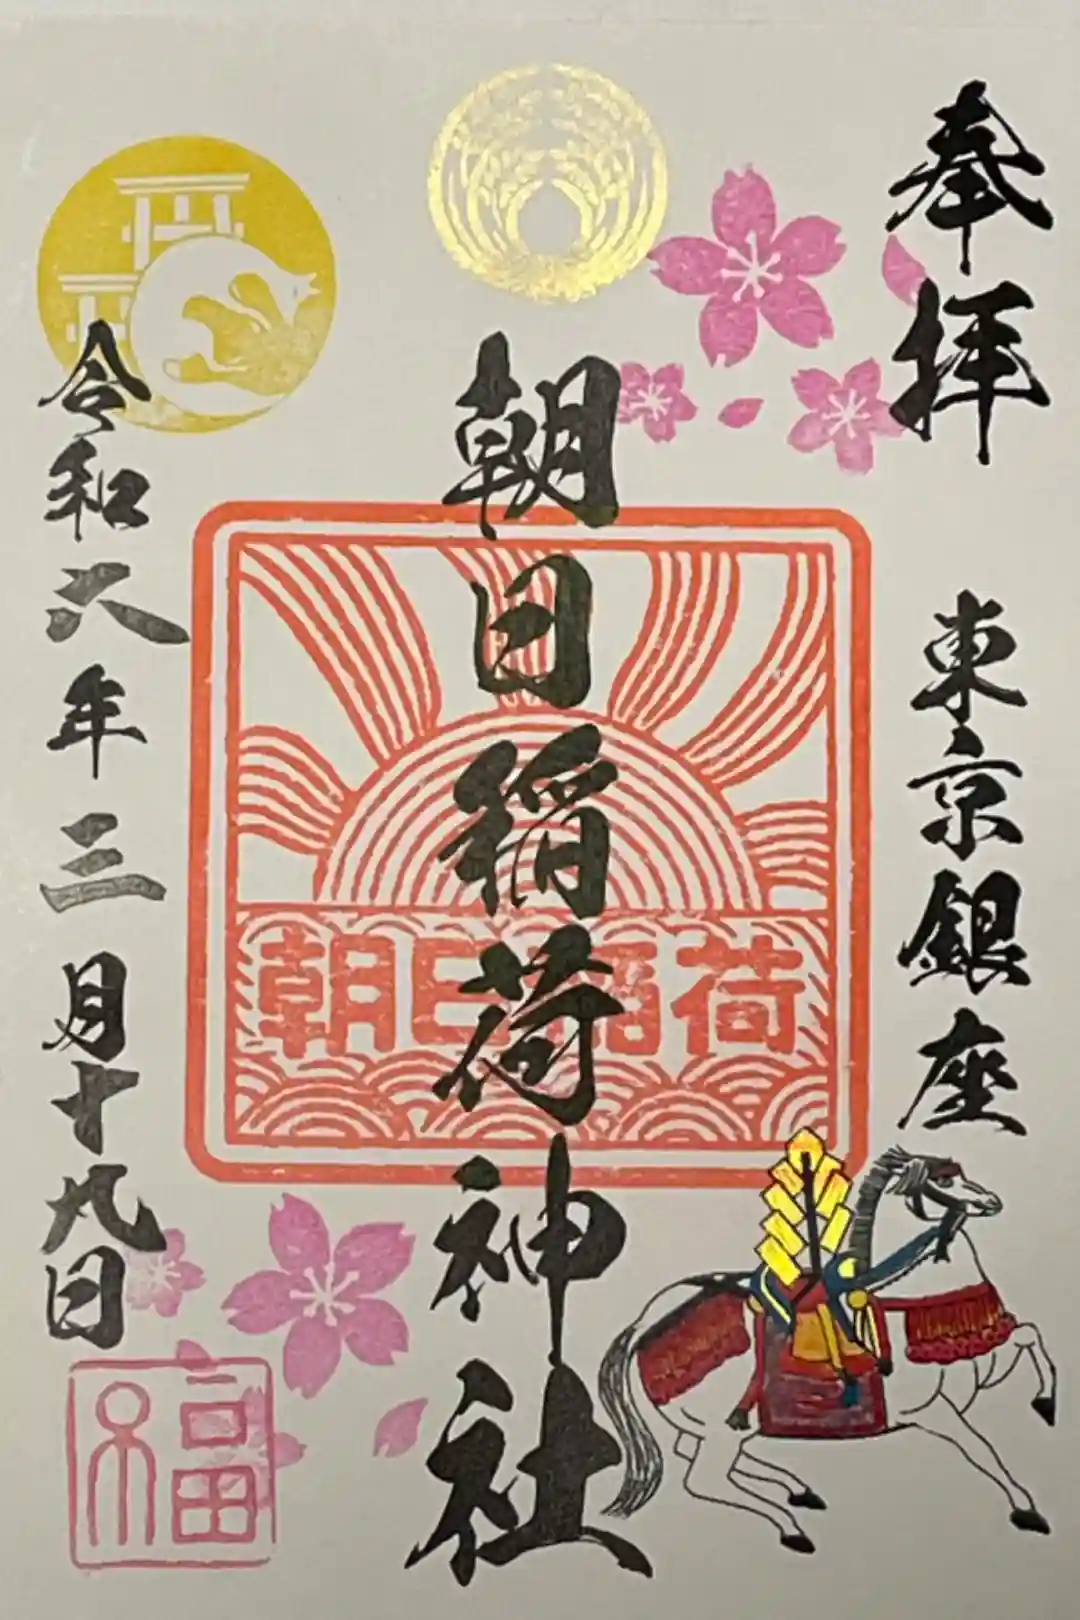 奉拝
東京銀座
朝日稲荷神社
朝日稲荷
令和六年三月十九日
福